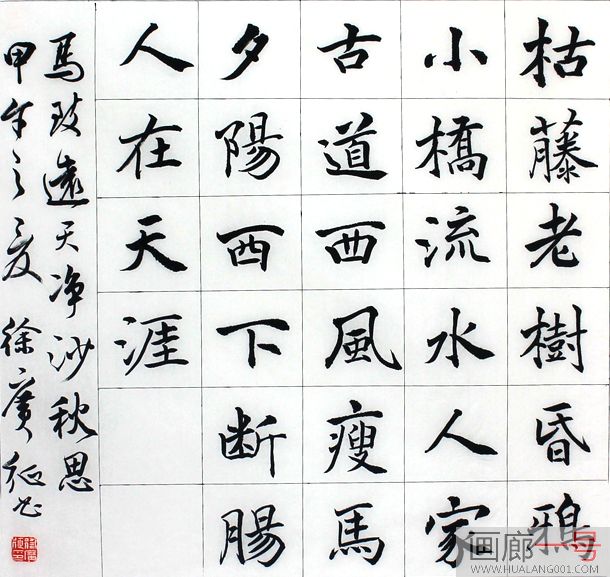 枯藤老樹昏鴉
小橋流水人家
古道西風瘦馬
夕陽西下斷腸
人在天涯
馬致遠天净沙秋思
甲午之夏徐廣征书
画廊一号
WWW.HUALANG001.COM